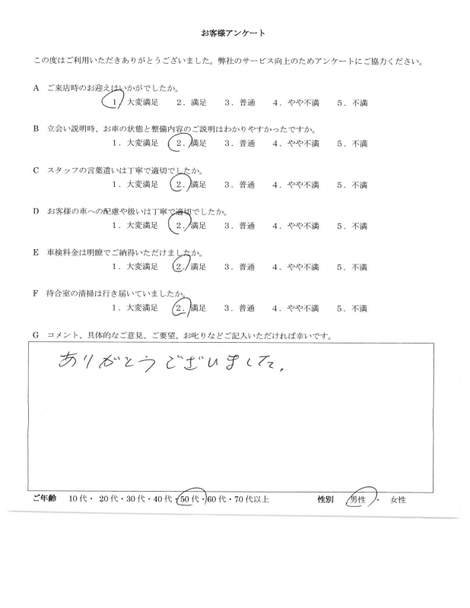 お客様アンケート
この度はご利用いただきありがとうございました。弊社のサービス向上のためアンケートにご協力ください。
A ご来店時のお迎えはいかがでしたか。
1. 大変満足 2. 満足 3. 普通 4. やや不満 5. 不満
B 立会い説明時、お車の状態と整備内容のご説明はわかりやすかったですか。
1. 大変満足 2. 満足 3. 普通 4. やや不満 5. 不満
C スタッフの言葉遣いは丁寧で適切でしたか。
1. 大変満足 2. 満足 3. 普通 4. やや不満 5. 不満
D お客様の車への配慮や扱いは丁寧で適切でしたか。
1. 大変満足 2. 満足 3. 普通 4. やや不満 5. 不満
E 車検料金は明瞭でご納得いただけましたか。
1. 大変満足 2. 満足 3. 普通 4. やや不満 5. 不満
F 待合室の清掃は行き届いていましたか。
1. 大変満足 2. 満足 3. 普通 4. やや不満 5. 不満
G コメント、具体的なご意見、ご要望、お叱りなどご記入いただければ幸いです。
ありがとうございました。
ご年齢 10代・20代・30代・40代・50代・60代・70代以上 性別 男性 ・ 女性